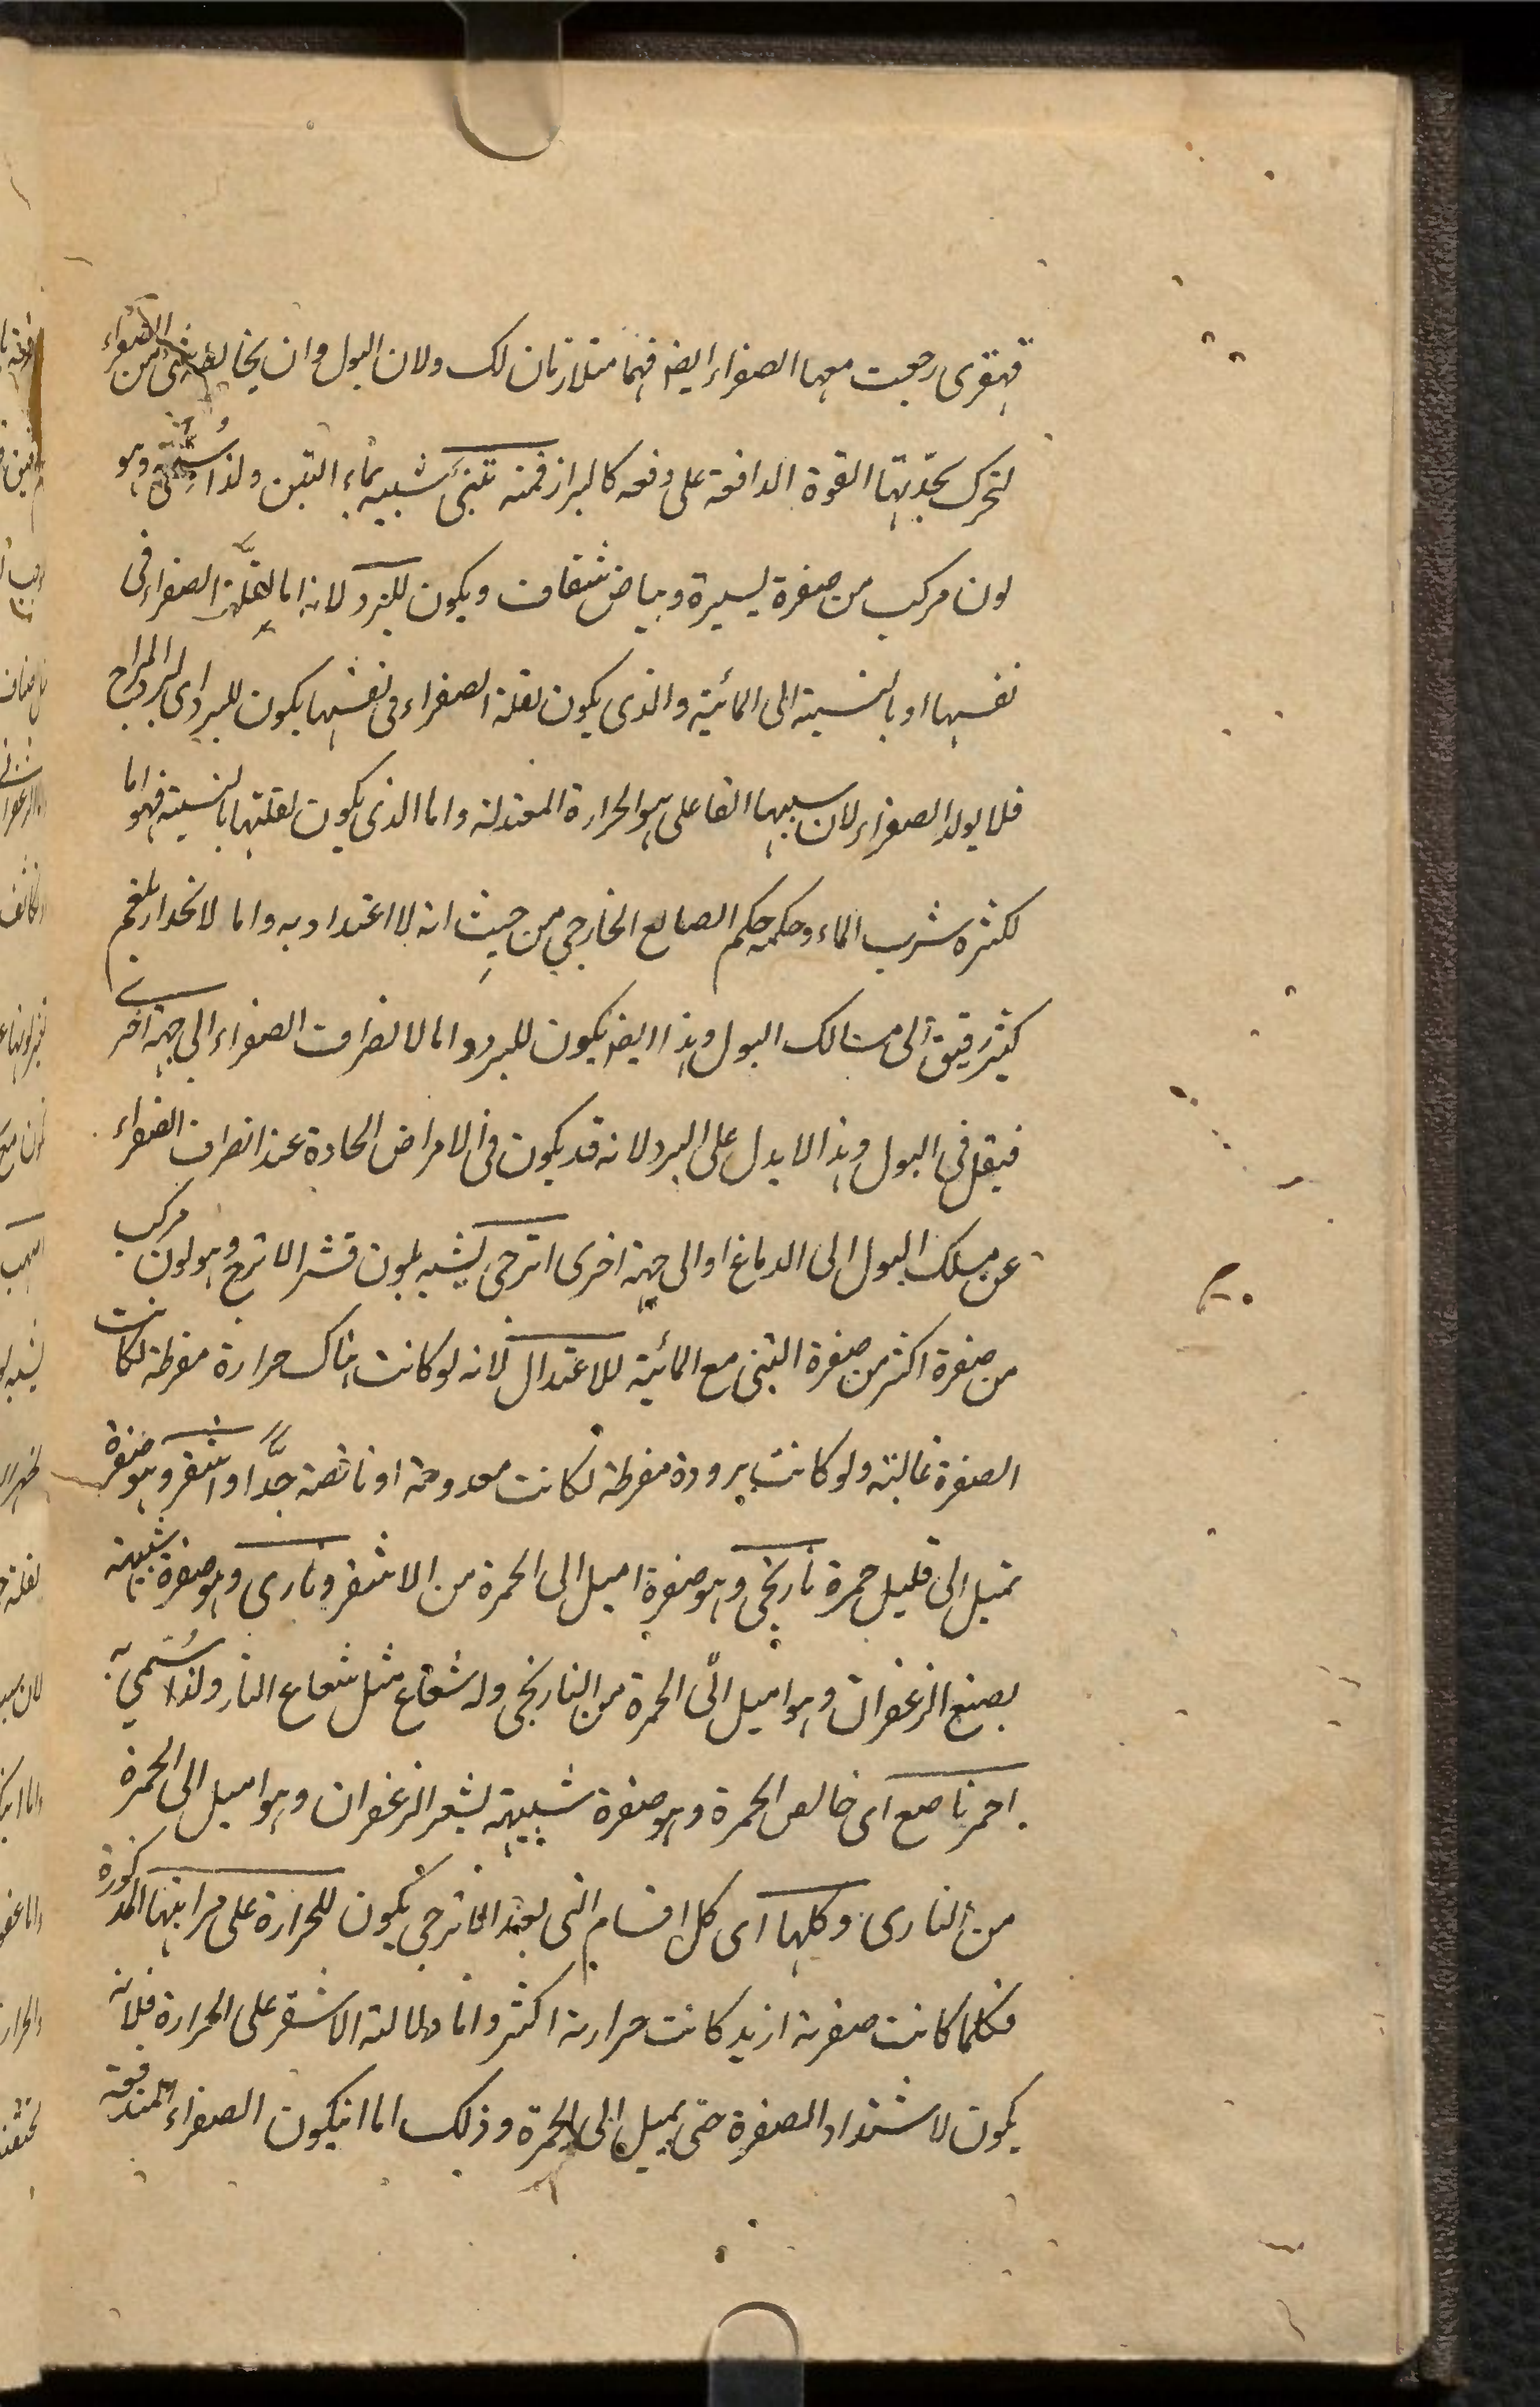 قهقرى رجعت معها الصفراء ايضا فهما متلازمان لك ولان البول وان يخالطه شى من الصفراء
لتحرك بحدتها القوة الدافعة على دفعه كالبراز فمنه تبنى شبيه بماء التبن ولذا سمى وهو
لون مركب من صفرة يسيرة وبياض شفاف ويكون للبرد لانه اما لقلة الصفراء فى
نفسها او بالنسبة الى المائية والذى يكون لقلة الصفراء فى نفسها يكون للبرد اى لبرد المزاج
فلا يولد الصفراء لان سببها الفاعلى هو الحرارة المعتدلة واما الذى يكون لقلتها بالنسبة فهو اما
لكثرة شرب الماء وحكمه حكم الصابغ الخارجي من حيث انه لا اعتداد به واما لانحدار بلغم
كثير رقيق الى مسالك البول وهذا ايضا يكون للبرد واما لانصراف الصفراء الى جهة اخرى
فيقل فى البول وهذا لا يدل على البرد لانه قد يكون فى الامراض الحادة عند انصراف الصفراء
عن مسلك البول الى الدماغ او الى جهة اخرى اترجى يشبه بلون قشر الاترج وهو لون مركب
من صفرة اكثر من صفرة التبنى مع المائية للاعتدال لانه لو كانت هناك حرارة مفرطة لكانت
الصفرة غالبة ولو كانت برودة مفرطة لكانت معدومة او ناقصة جدًّا واشقر وهو صفرة
تميل الى قليل حمرة نارنجى وهو صفرة اميل الى الحمرة من الاشقر ونارى وهو صفرة شبيهة
بصبغ الزعفران وهو اميل الى الحمرة من النارنجى وله شعاع مثل شعاع النار ولذا سُمّي به
احمر ناصع اى خالص الحمرة وهو صفرة شبيهة بشعر الزعفران وهو اميل الى الحمرة
من النارى وكلها اى كل اقسام التى بعد الاترجى يكون للحرارة على مراتبها المذكورة
فكلما كانت صفرته ازيد كانت حرارته اكثر واما دلالة الاشقر على الحرارة فلانه
يكون لاشتداد الصفرة حتى يميل الى الحمرة وذلك اما انيكون الصفراء المندفعة